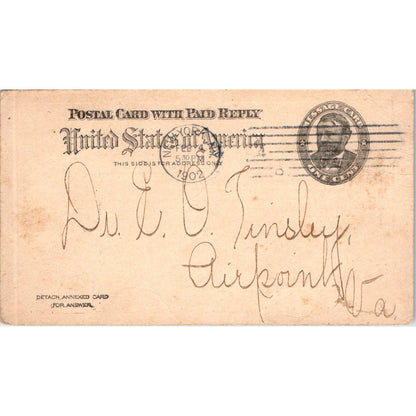 POSTAL CARD WITH PAID REPLY
United States of America
THIS SIDE IS FOR ADDRESS ONLY
NEW YORK, N.Y.
5-30 PM
1902
MESSAGE CARD
ONE CENT
Dr. E. O. Tinsley,
Airpoint,
Va.
DETACH ANNEXED CARD
FOR ANSWER.